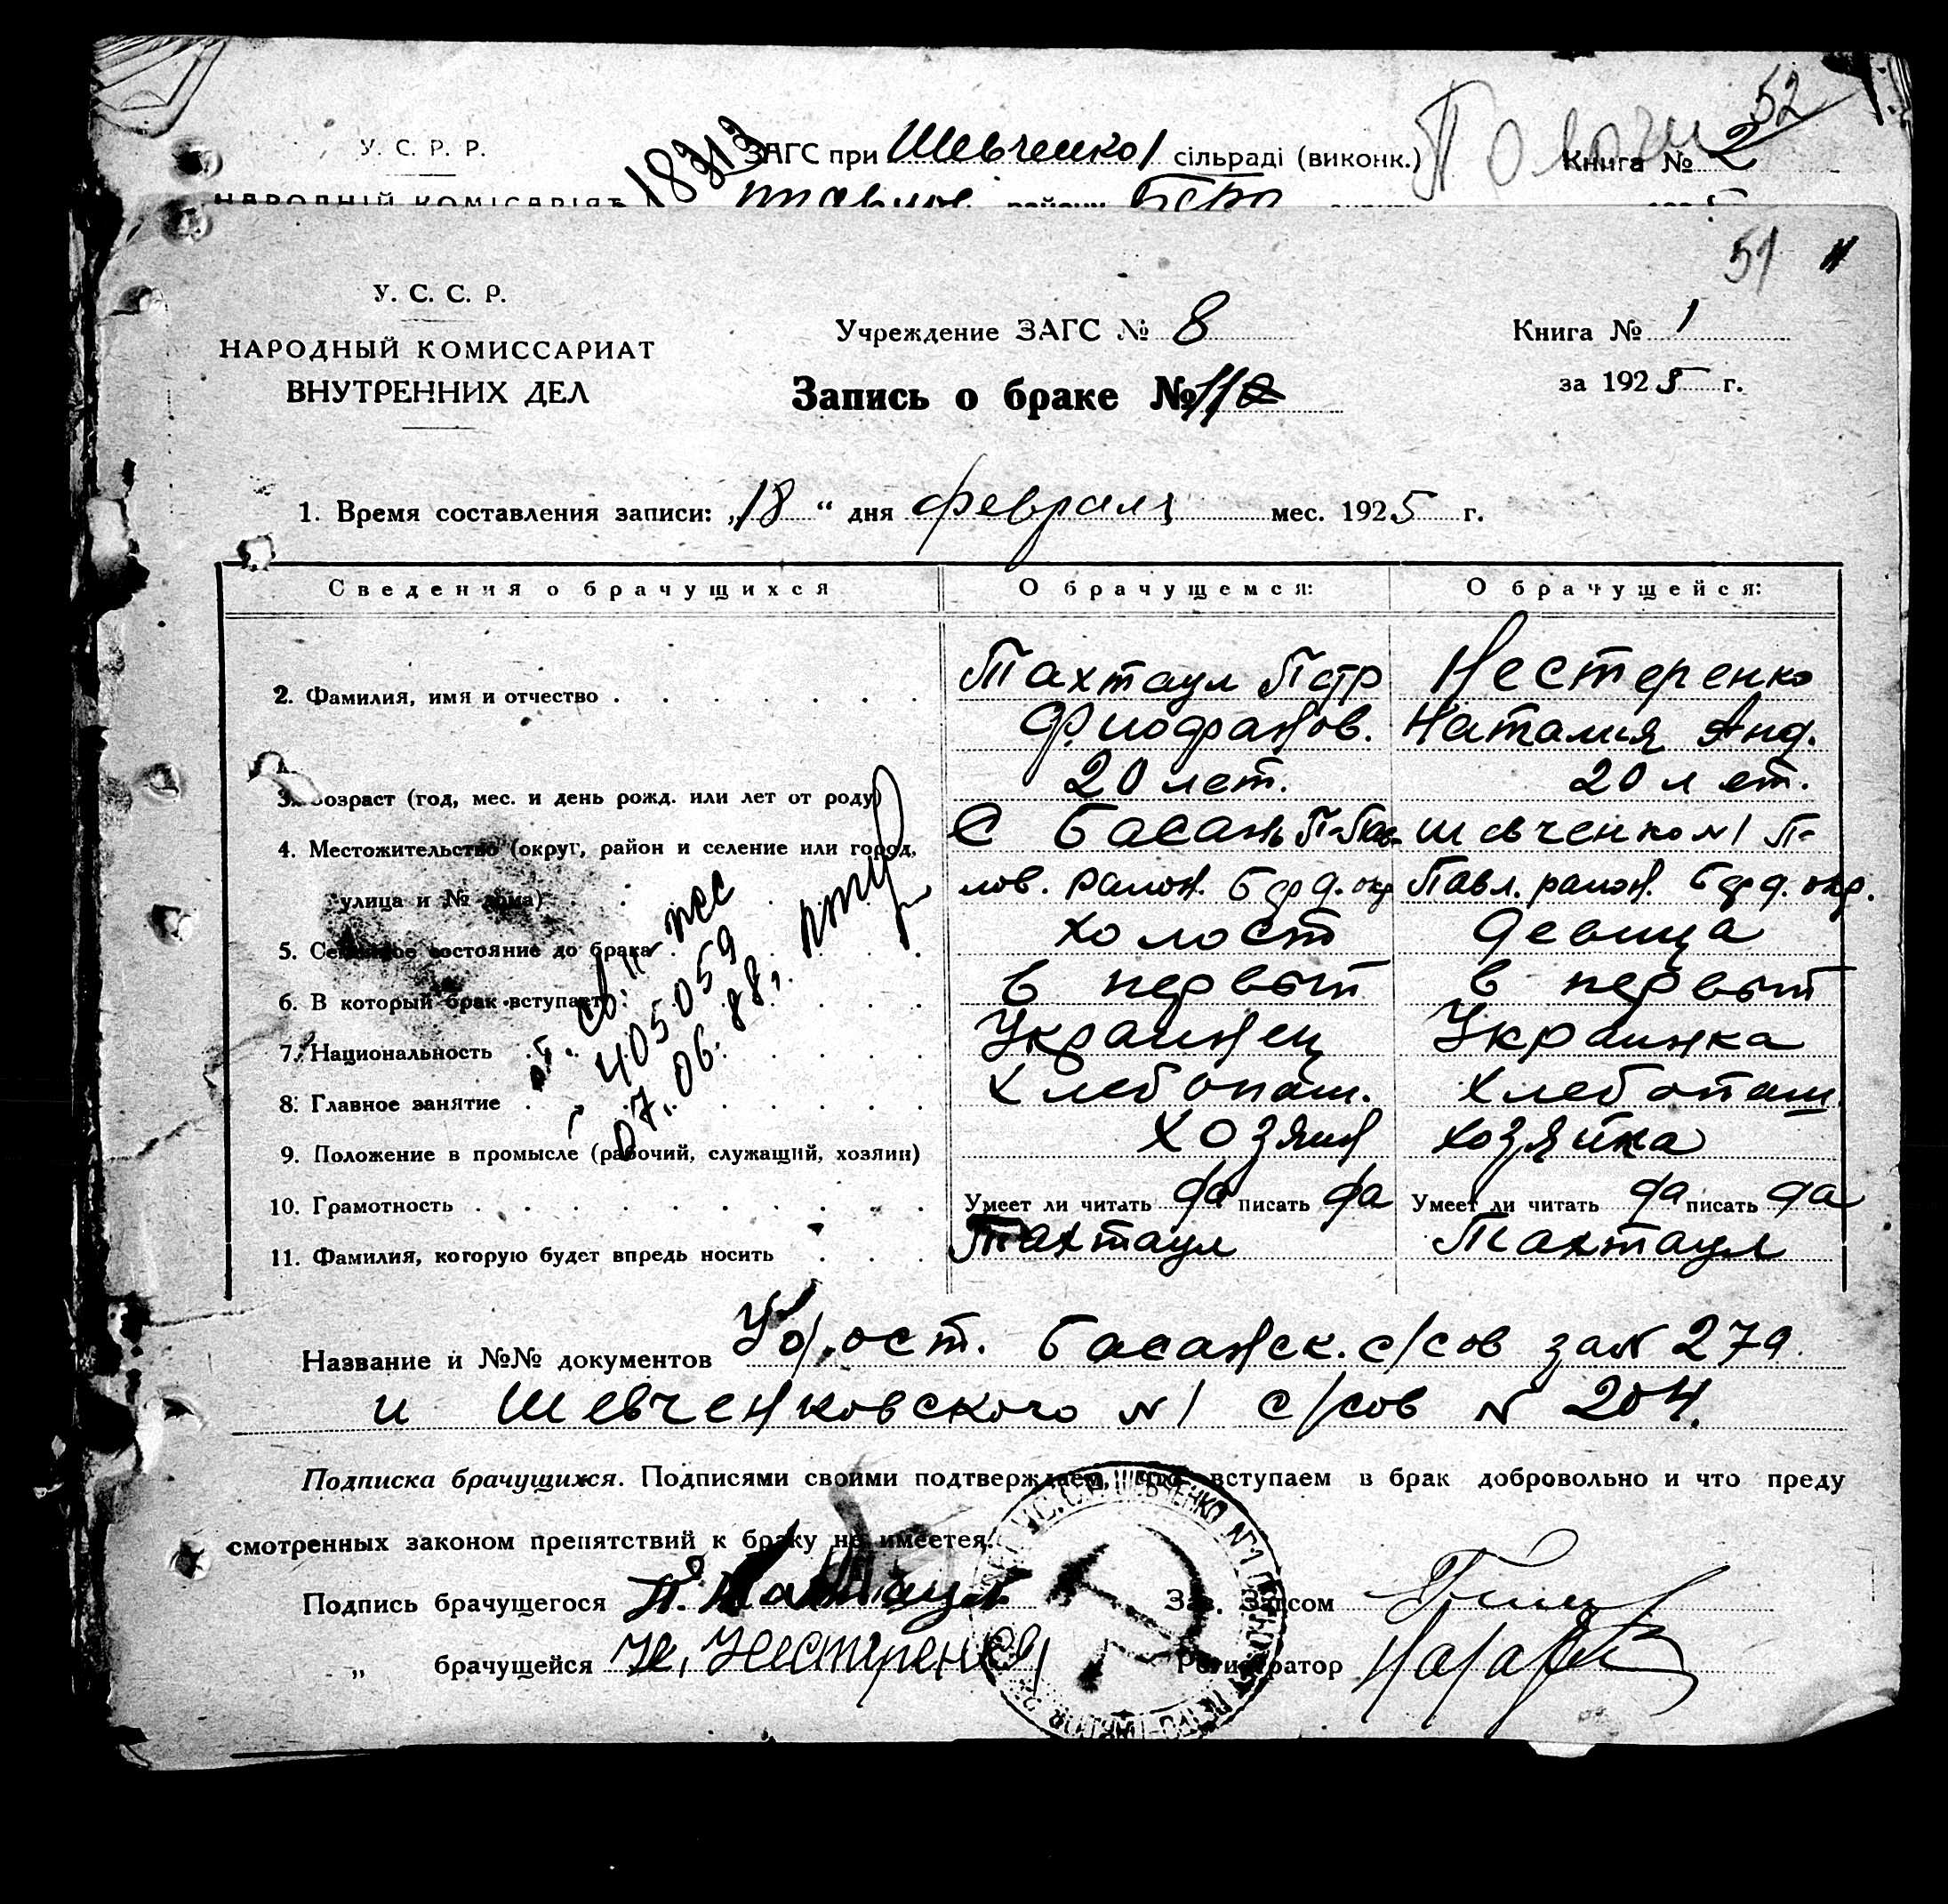 52
У. С. Р. Р.
18313
ЗАГС при Шевченко 1 сільраді (виконк.)
Книга № 2
НАРОДНІЙ КОМІСАРІЯТ
51
У. С. С. Р.
НАРОДНЫЙ КОМИССАРИАТ
ВНУТРЕННИХ ДЕЛ
Учреждение ЗАГС № 8
Книга № 1
Запись о браке №
за 1925 г.
1. Время составления записи: „18“ дня февраля мес. 1925 г.
Сведения о брачущихся О брачущемся: О брачущейся:
2. Фамилия, имя и отчество Тахтаул Петр Нестеренко
Наталия Анд.
3. Возраст (год, мес. и день рожд. или лет от роду) 20 лет. 20 лет.
4. Местожительство (округ, район и селение или город, С Басань П-Пав- Шевченко N1 П-
улица и № дома) лов. район. Берд. окр Павл. район. Берд. окр.
5. Семейное состояние до брака холост девица
6. В который брак вступает в первый в первый
7. Национальность Украинец Украинка
8. Главное занятие Хлебопаш. Хлебопаш
9. Положение в промысле (рабочий, служащий, хозяин) хозяин хозяйка
10. Грамотность Умеет ли читать да писать да Умеет ли читать да писать да
11. Фамилия, которую будет впредь носить Тахтаул Тахтаул
405059
07.06.88г.
Название и №№ документов Удост. Басанск. с/сов за N 279
и Шевченковского N1 с/сов N 204.
Подписка брачущихся. Подписями своими подтверждаем, что вступаем в брак добровольно и что преду
смотренных законом препятствий к браку не имеется.
Подпись брачущегося П. Тахтаул Зав. Загсом
„ брачущейся Н. Нестеренко Регистратор